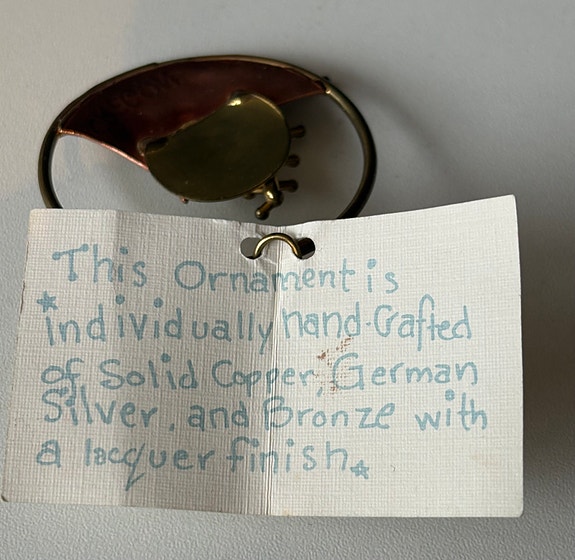 This Ornament is
individually hand-Crafted
of Solid Copper, German
Silver, and Bronze with
a lacquer finish